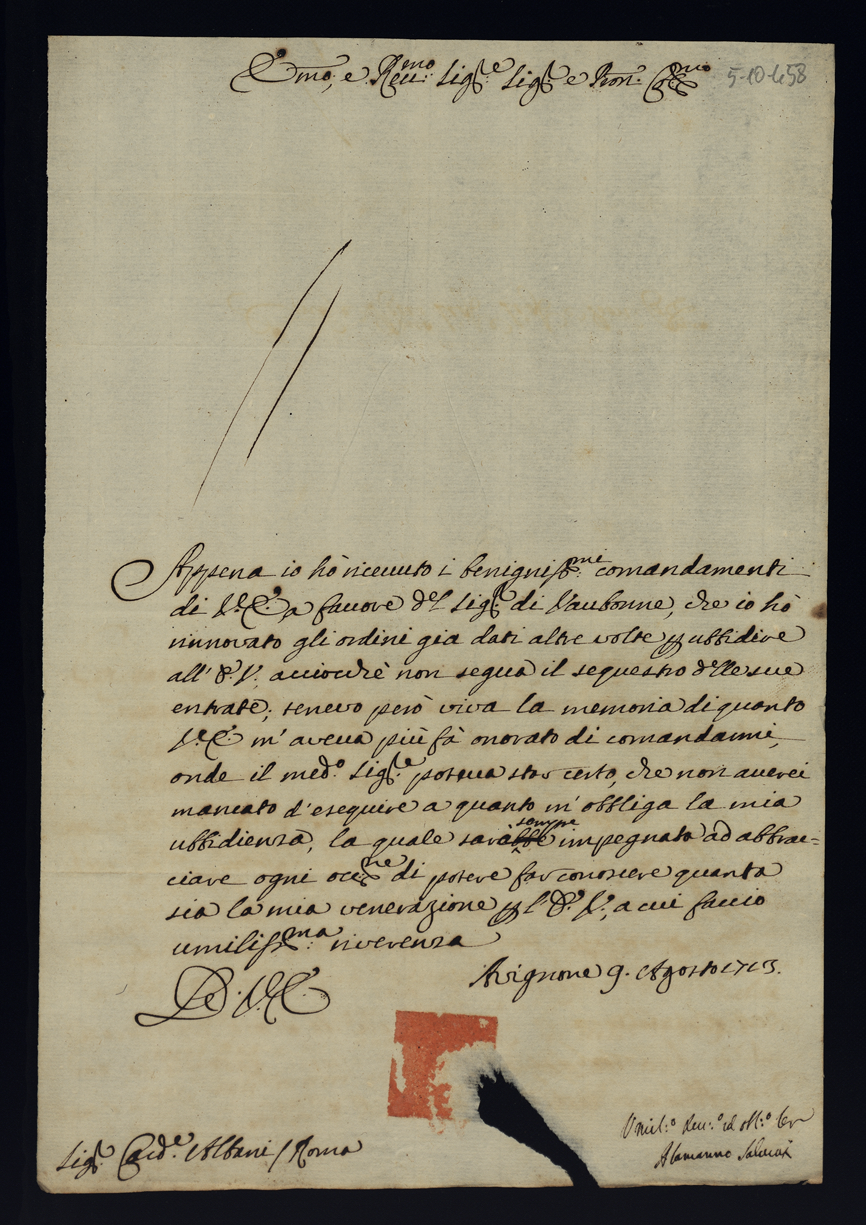 Emo, e Reu:mo Sig:re Sig:re e Pron: Col:mo
5-10-458
Appena io hò riceuuto i benigniss:mi comandamenti
di V:E: a fauore del Sig:re di Vaubonne, che io hò
rinnovato gli ordini già dati altre volte p ubbidire
all' E: V:, acciochè non segua il sequestro delle sue
entrate; tenevo però viva la memoria di quanto
V:E: m' aveua più fà onorato di comandarmi,
onde il med:o Sig:re poteua star certo, che non averei
mancato d' eseguire a quanto m' obbliga la mia
ubbidienza, la quale sarà sempre impegnata ad abbrac=
ciare ogni occ:ne di potere far conoscere quanta
sia la mia venerazione p l' E: V:, a cui faccio
umiliss:ma riverenza
Avignone 9. Agosto 1713.
De V:E:
Umil:o Deu:o ed obl:o Ser
Alamanno Salviati
Sig:r Card:e Albani / Roma